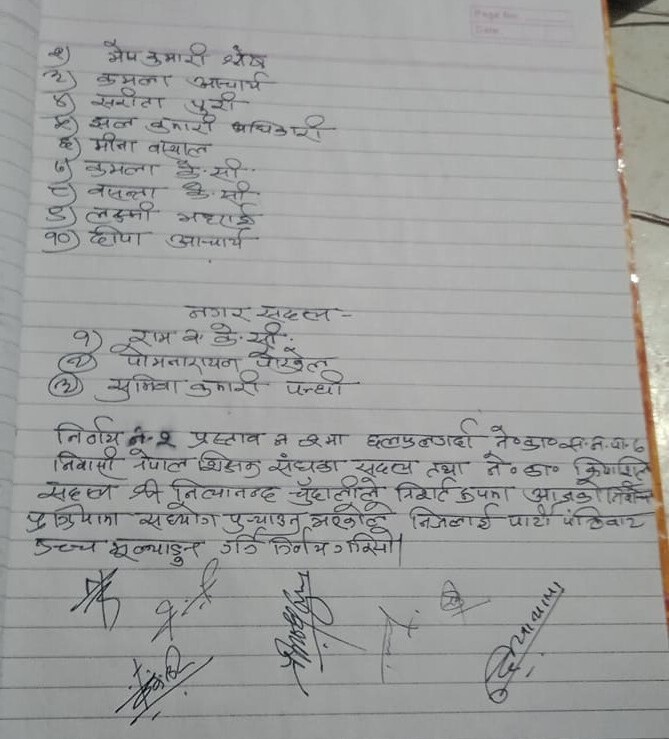 Page No.
Date
२) मेघ कुमारी श्रेष्ठ
३) कमला आचार्य
४) सरीता पुरी
५) झल कुमारी अधिकारी
६) मीना वाग्ले
७) कमला के.सी.
८) वसन्ता के.सी.
९) लक्ष्मी भट्टराई
१०) दीपा आचार्य
नगर सदस्य -
१) राम व. के.सी.
२) पोमनारायन पोखरेल
३) सुमित्रा कुमारी पन्थी
निर्णय नं.२ प्रस्ताव नं २मा छलफलगर्दा ने०का०स.न.पा.
निवासी नेपाल शिक्षक संघका सदस्य तथा ने०का० क्रियाशिल
सदस्य श्री नित्यानन्द चुँदालीले निशर्त रुपमा आजका
प्रक्रियामा सहयोग पुऱ्याउनु भएकोले निजलाई पार्टी पंक्तिबाट
उच्च मूल्याङ्कन गर्ने निर्णय गरियो।